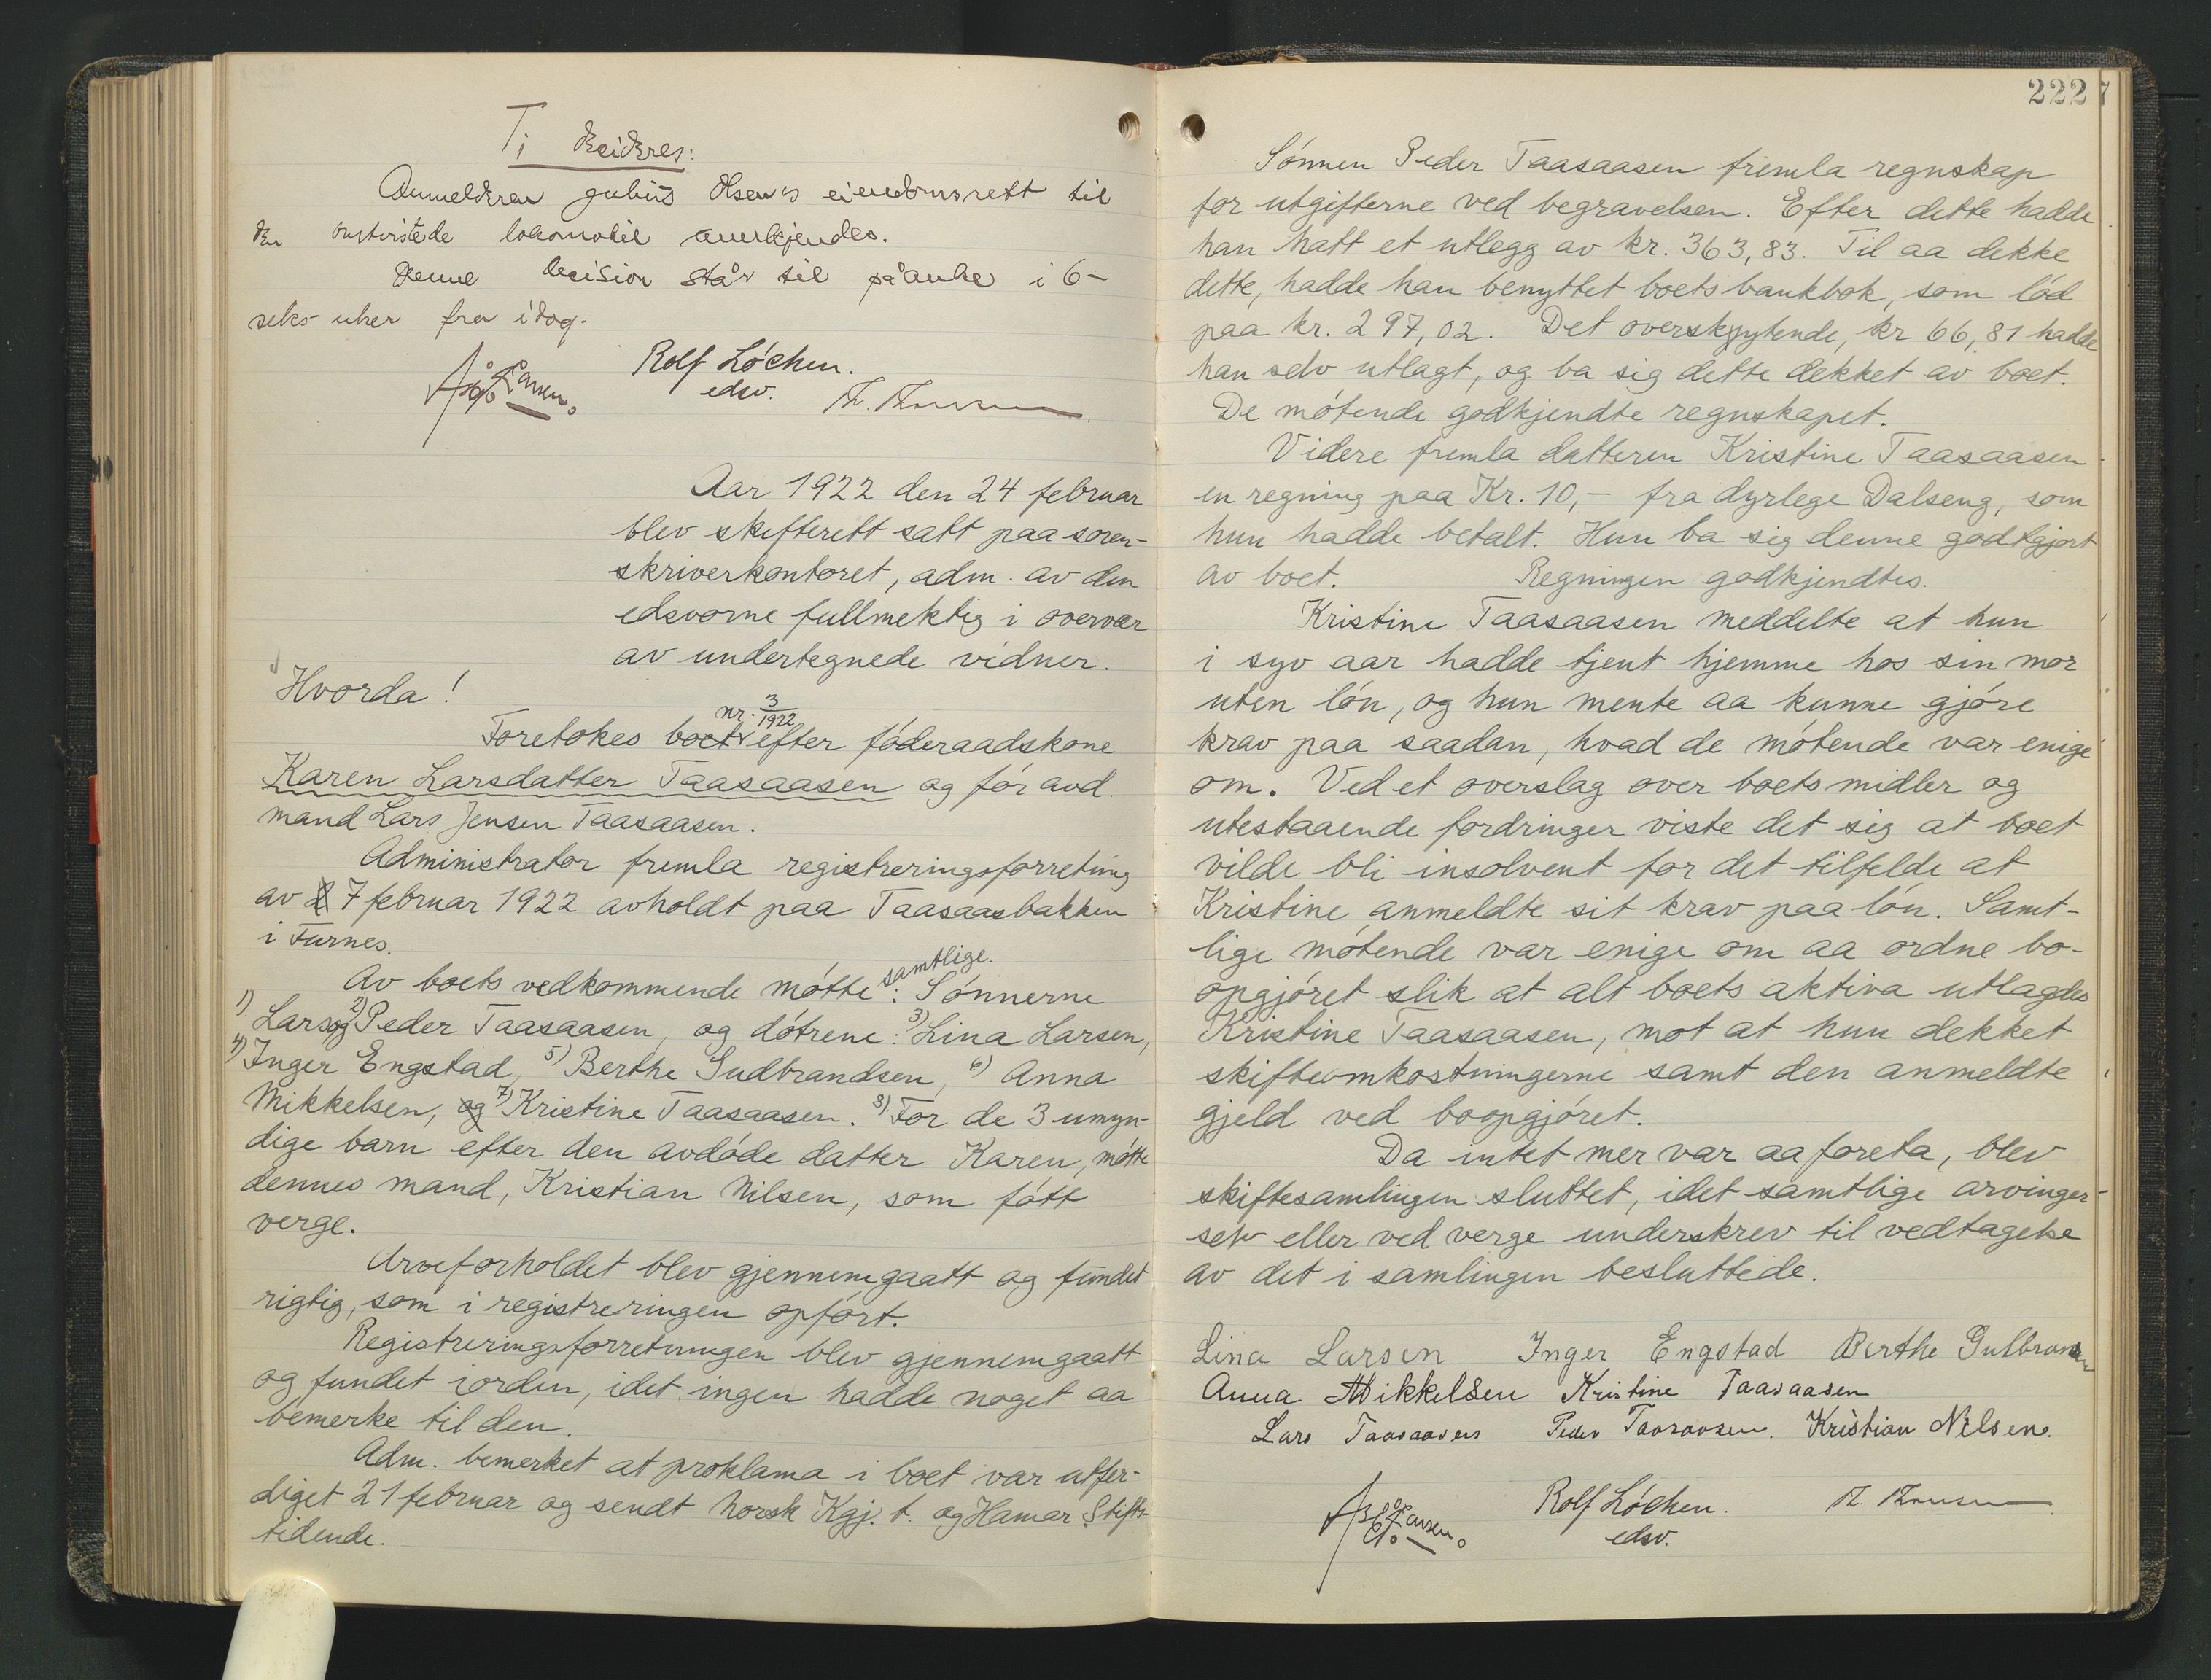 Ti decideres:
Anmelderen Julius Olsen's eiendomsrett til
den omtvistede lokomobil anerkjendes.
Denne decision står til påanke i 6-
seks- uker fra idag.
Rolf Lóchen.
edsv.
Aar 1922 den 24 februar
blev skifterett satt paa soren-
skriverkontoret, adm. av den
edsvorne fullmektig i overvær
av undertegnede vidner.
Hvorda!
nr. 3/1922
Foretokes boet efter fóderaadskone
Karen Larsdatter Taasaasen og fór avd.
mand Lars Jensen Taasaasen.
Administrator fremla registreringsforretning
av 7 februar 1922 avholdt paa Taasaasbakken
i Furnes.
samtlige.
Av boets vedkommende mótte: Sónnerne
1) Lars og 2) Peder Taasaasen, og dótrene: 3) Lina Larsen,
4) Inger Engstad, 5) Berthe Gudbrandsen, 6) Anna
Mikkelsen, og 7) Kristine Taasaasen. 8) For de 3 umyn-
dige barn efter den avdóde datter Karen, mótte
dennes mand, Kristian Nilsen, som fótt
verge.
Arveforholdet blev gjennemgaatt og fundet
rigtig, som i registreringen opfórt.
Registreringsforretningen blev gjennemgaatt
og fundet iorden, idet ingen hadde noget aa
bemerke til den.
Adm. bemerket at proklama i boet var utfer-
diget 21 februar og sendt Norsk Kgj. t. og Hamar Stifts-
tidende.
222
Sónnen Peder Taasaasen fremla regnskap
for utgifterne ved begravelsen. Efter dette hadde
han hatt et utlegg av kr. 363,83. Til aa dekke
dette, hadde han benyttet boets bankbok, som lód
paa kr. 297,02. Det overskytende, kr 66,81 hadde
han selv utlagt, og ba sig dette dekket av boet.
De mótende godkjendte regnskapet.
Videre fremla datteren Kristine Taasaasen
en regning paa Kr. 10,- fra dyrlege Dalseng, som
hun hadde betalt. Hun ba sig denne godtgjort
av boet. Regningen godkjendtes.
Kristine Taasaasen meddelte at hun
i syv aar hadde tjent hjemme hos sin mor
uten lón, og hun mente aa kunne gjóre
krav paa saadan, hvad de mótende var enige
om. Ved et overslag over boets midler og
utestaaende fordringer viste det sig at boet
vilde bli insolvent for det tilfelde at
Kristine anmeldte sit krav paa lón. Samt-
lige mótende var enige om aa ordne bo-
opgjóret slik at alt boets aktiva utlagdes
Kristine Taasaasen, mot at hun dekket
skifteomkostningerne samt den anmeldte
gjeld ved boopgjóret.
Da intet mer var aa foreta, blev
skiftesamlingen sluttet, idet samtlige arvinger
selv eller ved verge underskrev til vedtagelse
av det i samlingen besluttede.
Lina Larsen Inger Engstad Berthe Gulbransen
Anna Mikkelsen Kristine Taasaasen
Lars Taasaasen Peder Taasaasen. Kristian Nilsen.
Rolf Lóchen.
edsv.